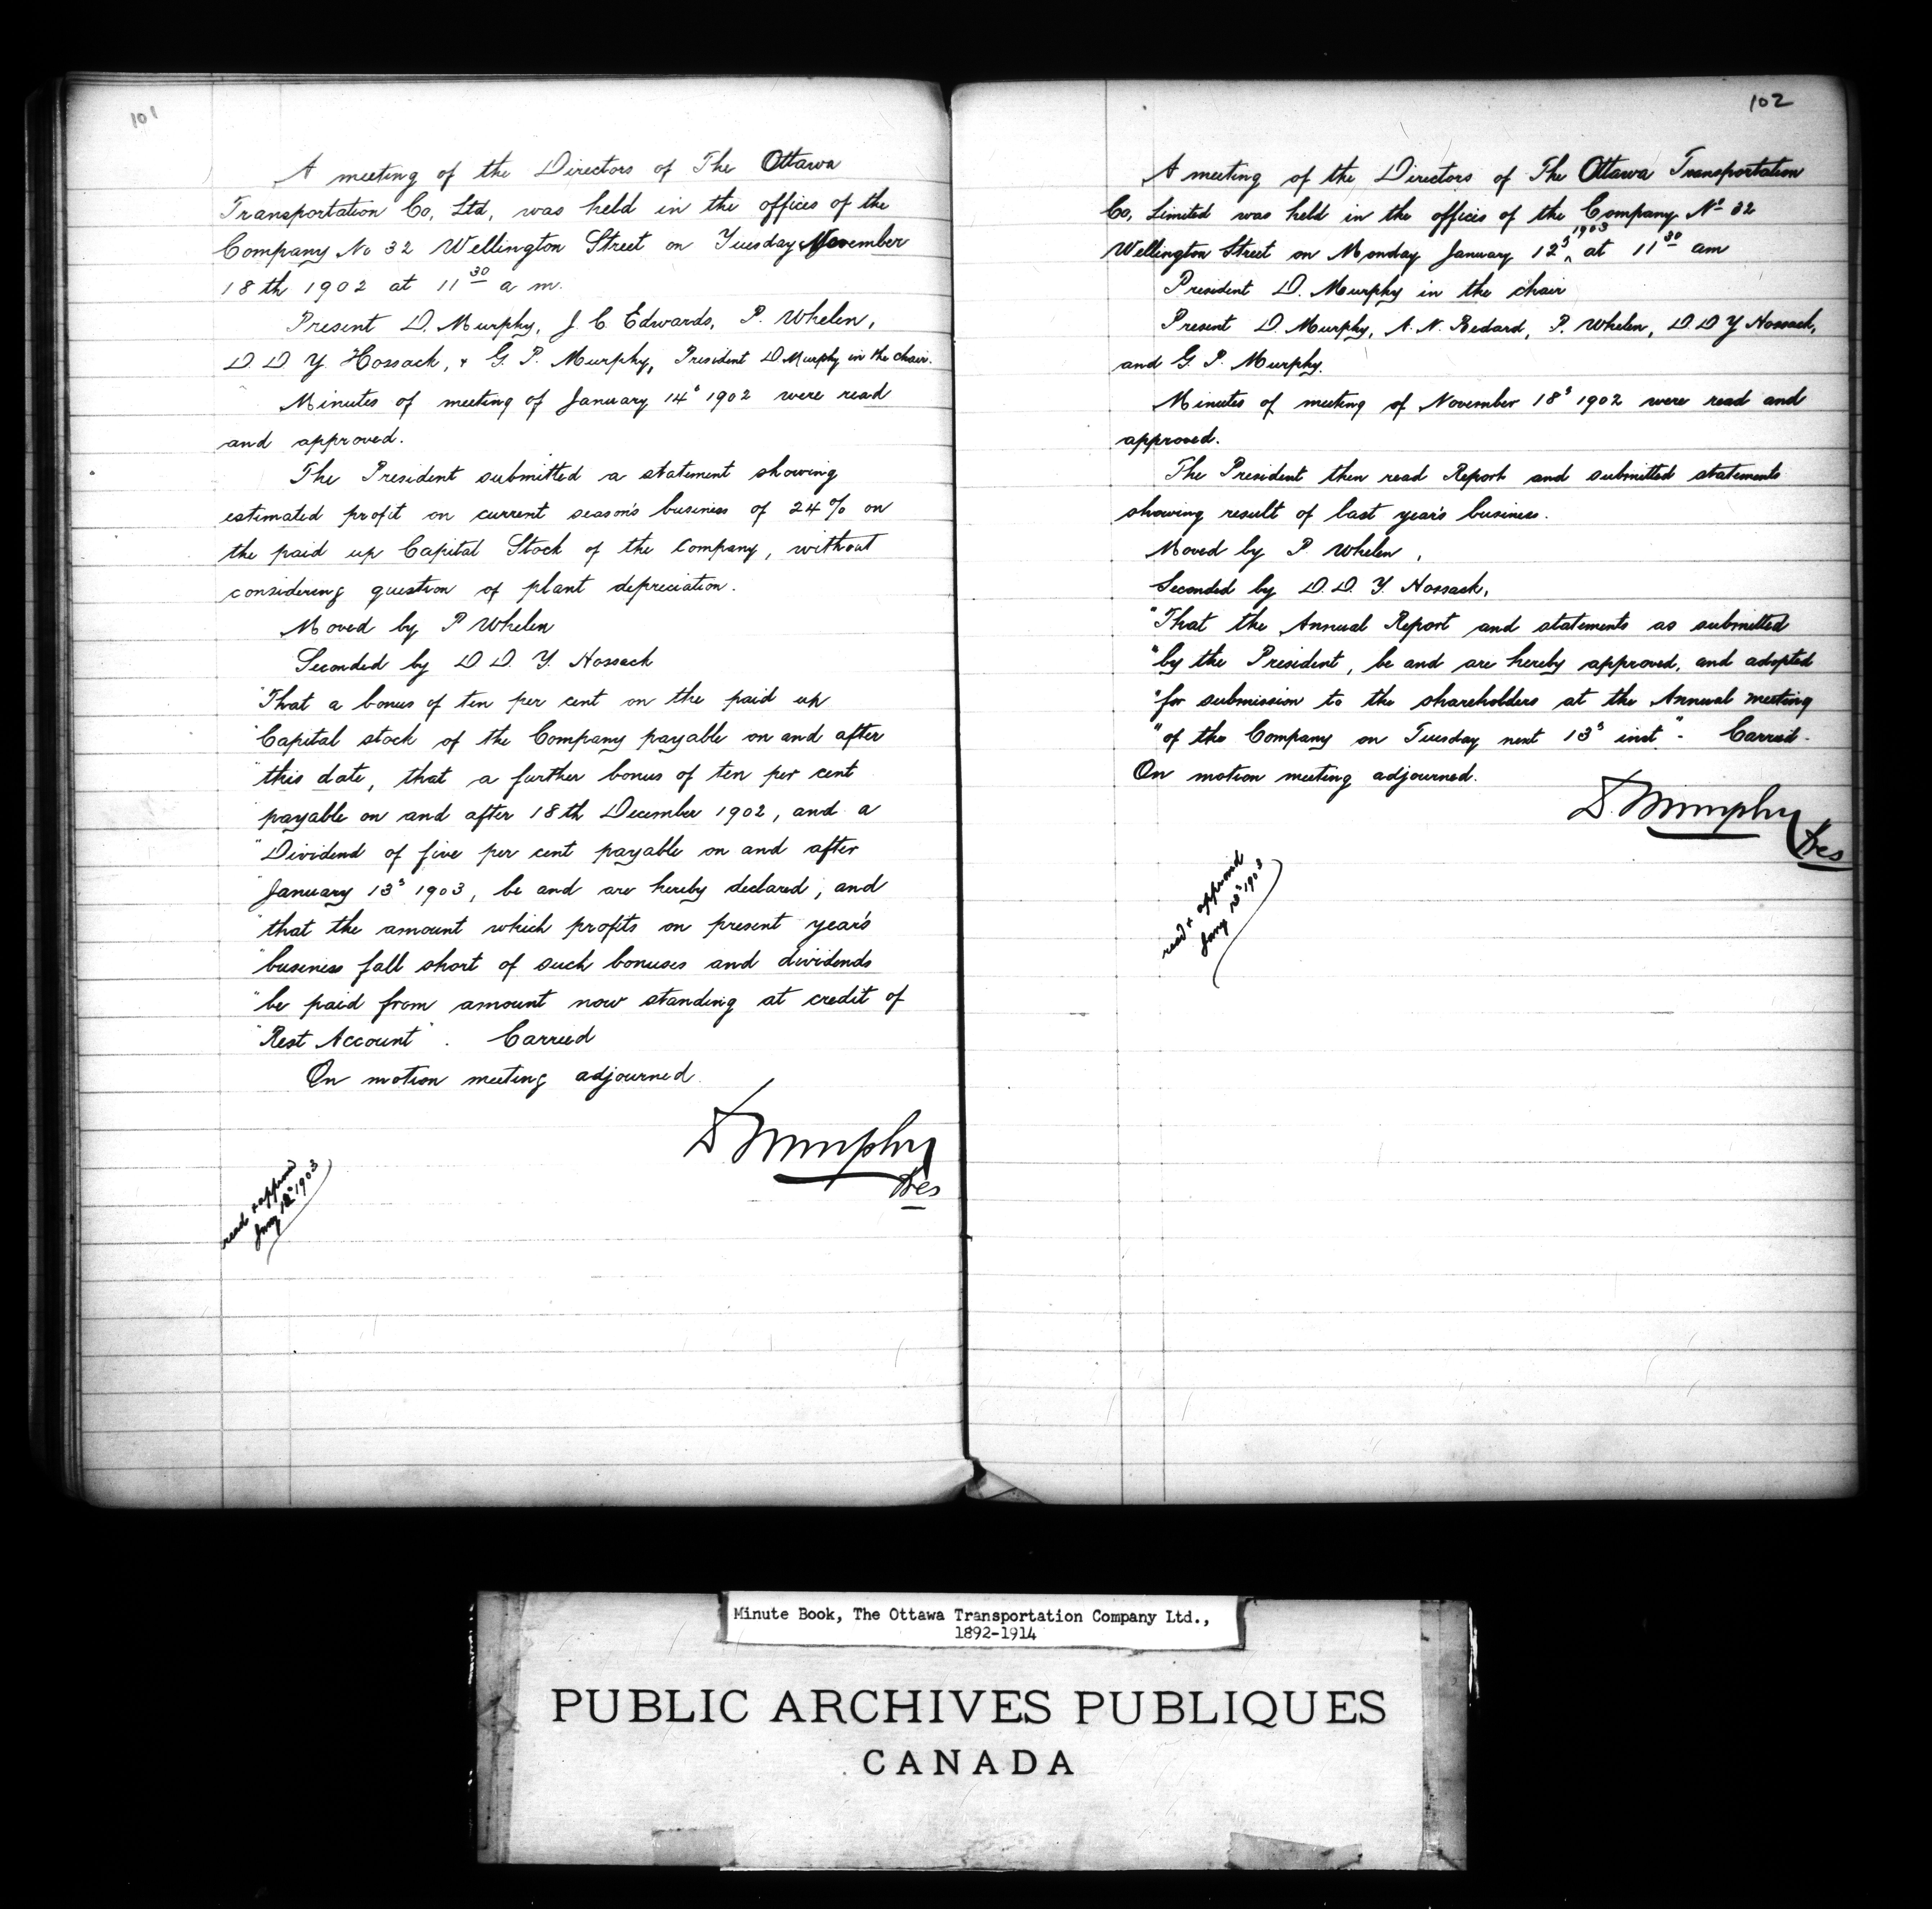 101
A meeting of the Directors of The Ottawa
Transportation Co, Ltd, was held in the offices of the
Company No 32 Wellington Street on Tuesday November
18th 1902 at 11 30 a m.
Present D. Murphy, J. C. Edwards, P. Whelen,
D. D. Y. Hossack, & G. P. Murphy, President D Murphy in the chair.
Minutes of meeting of January 14th 1902 were read
and approved.
The President submitted a statement showing
estimated profit on current season's business of 24% on
the paid up Capital Stock of the Company, without
considering question of plant depreciation.
Moved by P Whelen
Seconded by D D. Y. Hossack
"That a bonus of ten per cent on the paid up
"Capital stock of the Company payable on and after
"this date, that a further bonus of ten per cent
"payable on and after 18th December 1902, and a
"Dividend of five per cent payable on and after
"January 13th 1903, be and are hereby declared, and
"that the amount which profits on present year's
"business fall short of such bonuses and dividends
"be paid from amount now standing at credit of
"Rest Account". Carried
On motion meeting adjourned.
D Murphy
Pres
read & approved
Jany 12th 1903
102
A meeting of the Directors of The Ottawa Transportation
Co, Limited was held in the offices of the Company No 32
Wellington Street on Monday January 12th 1903 at 11 30 am
President D. Murphy in the chair
Present D. Murphy, A. N. Bedard, P. Whelen, D. D Y Hossack,
and G. P. Murphy.
Minutes of meeting of November 18th 1902 were read and
approved.
The President then read Report and submitted statements
showing result of last year's business.
Moved by P Whelen,
Seconded by D. D. Y. Hossack,
"That the Annual Report and statements as submitted
"by the President, be and are hereby approved, and adopted
"for submission to the shareholders at the Annual meeting
"of the Company on Tuesday next 13th inst". Carried.
On motion meeting adjourned.
D. Murphy
Pres
read & approved
Jany 13th 1903
Minute Book, The Ottawa Transportation Company Ltd.,
1892-1914
PUBLIC ARCHIVES PUBLIQUES
CANADA